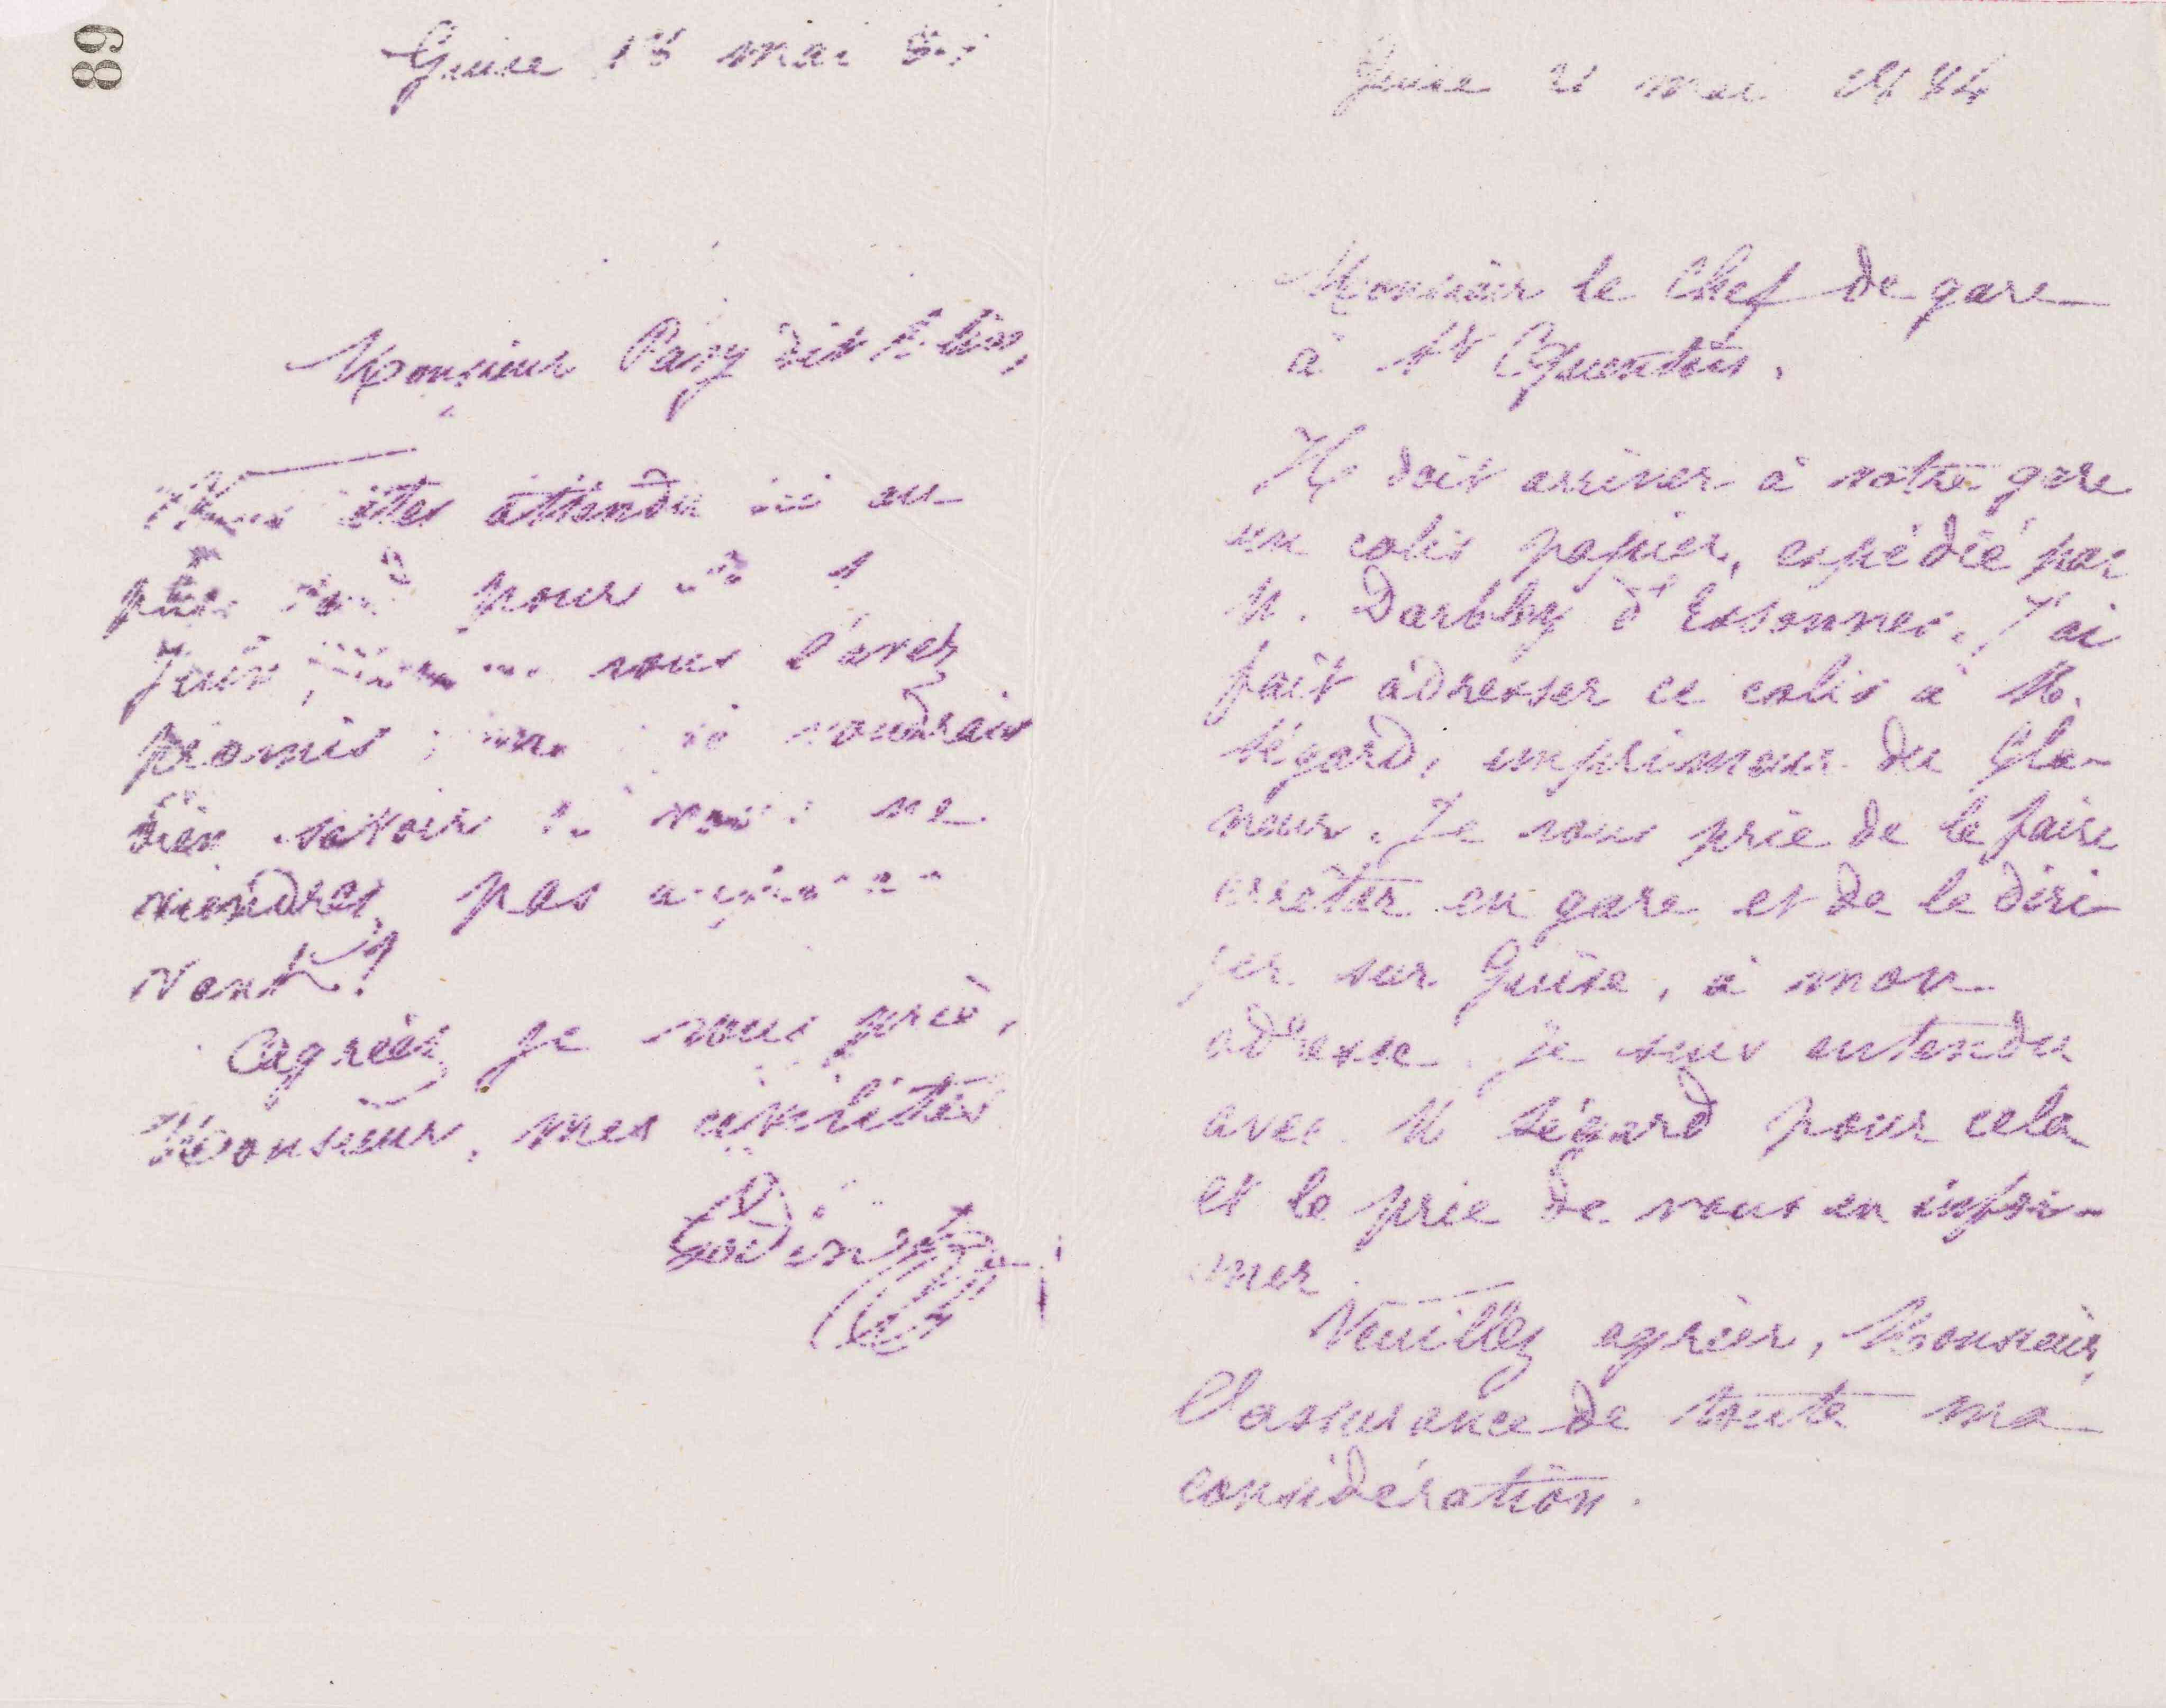 89
Guise 18 mai 84
Monsieur Pary dit
Vous êtes attendu ici au
plus tard pour le 1
Juin vous l'avez
promis ; voudrais
bien savoir si vous ne
viendrez pas
vant ?
Agréez je vous prie,
Monsieur, mes civilités
Godin
Guise 21 mai 1884
Monsieur le Chef de gare
à St Quentin.
Il doit arriver à votre gare
un colis papier, expédié par
M. Darblay d'Essonnes. J'ai
fait adresser ce colis à M.
Ségard, imprimeur du Gla-
neur. Je vous prie de le faire
arrêter en gare et de le diri
ger sur Guise, à mon
adresse. Je suis entendu
avec M Ségard pour cela
et le prie de vous en infor-
mer.
Veuillez agréer, Monsieur,
l'assurance de toute ma
considération.